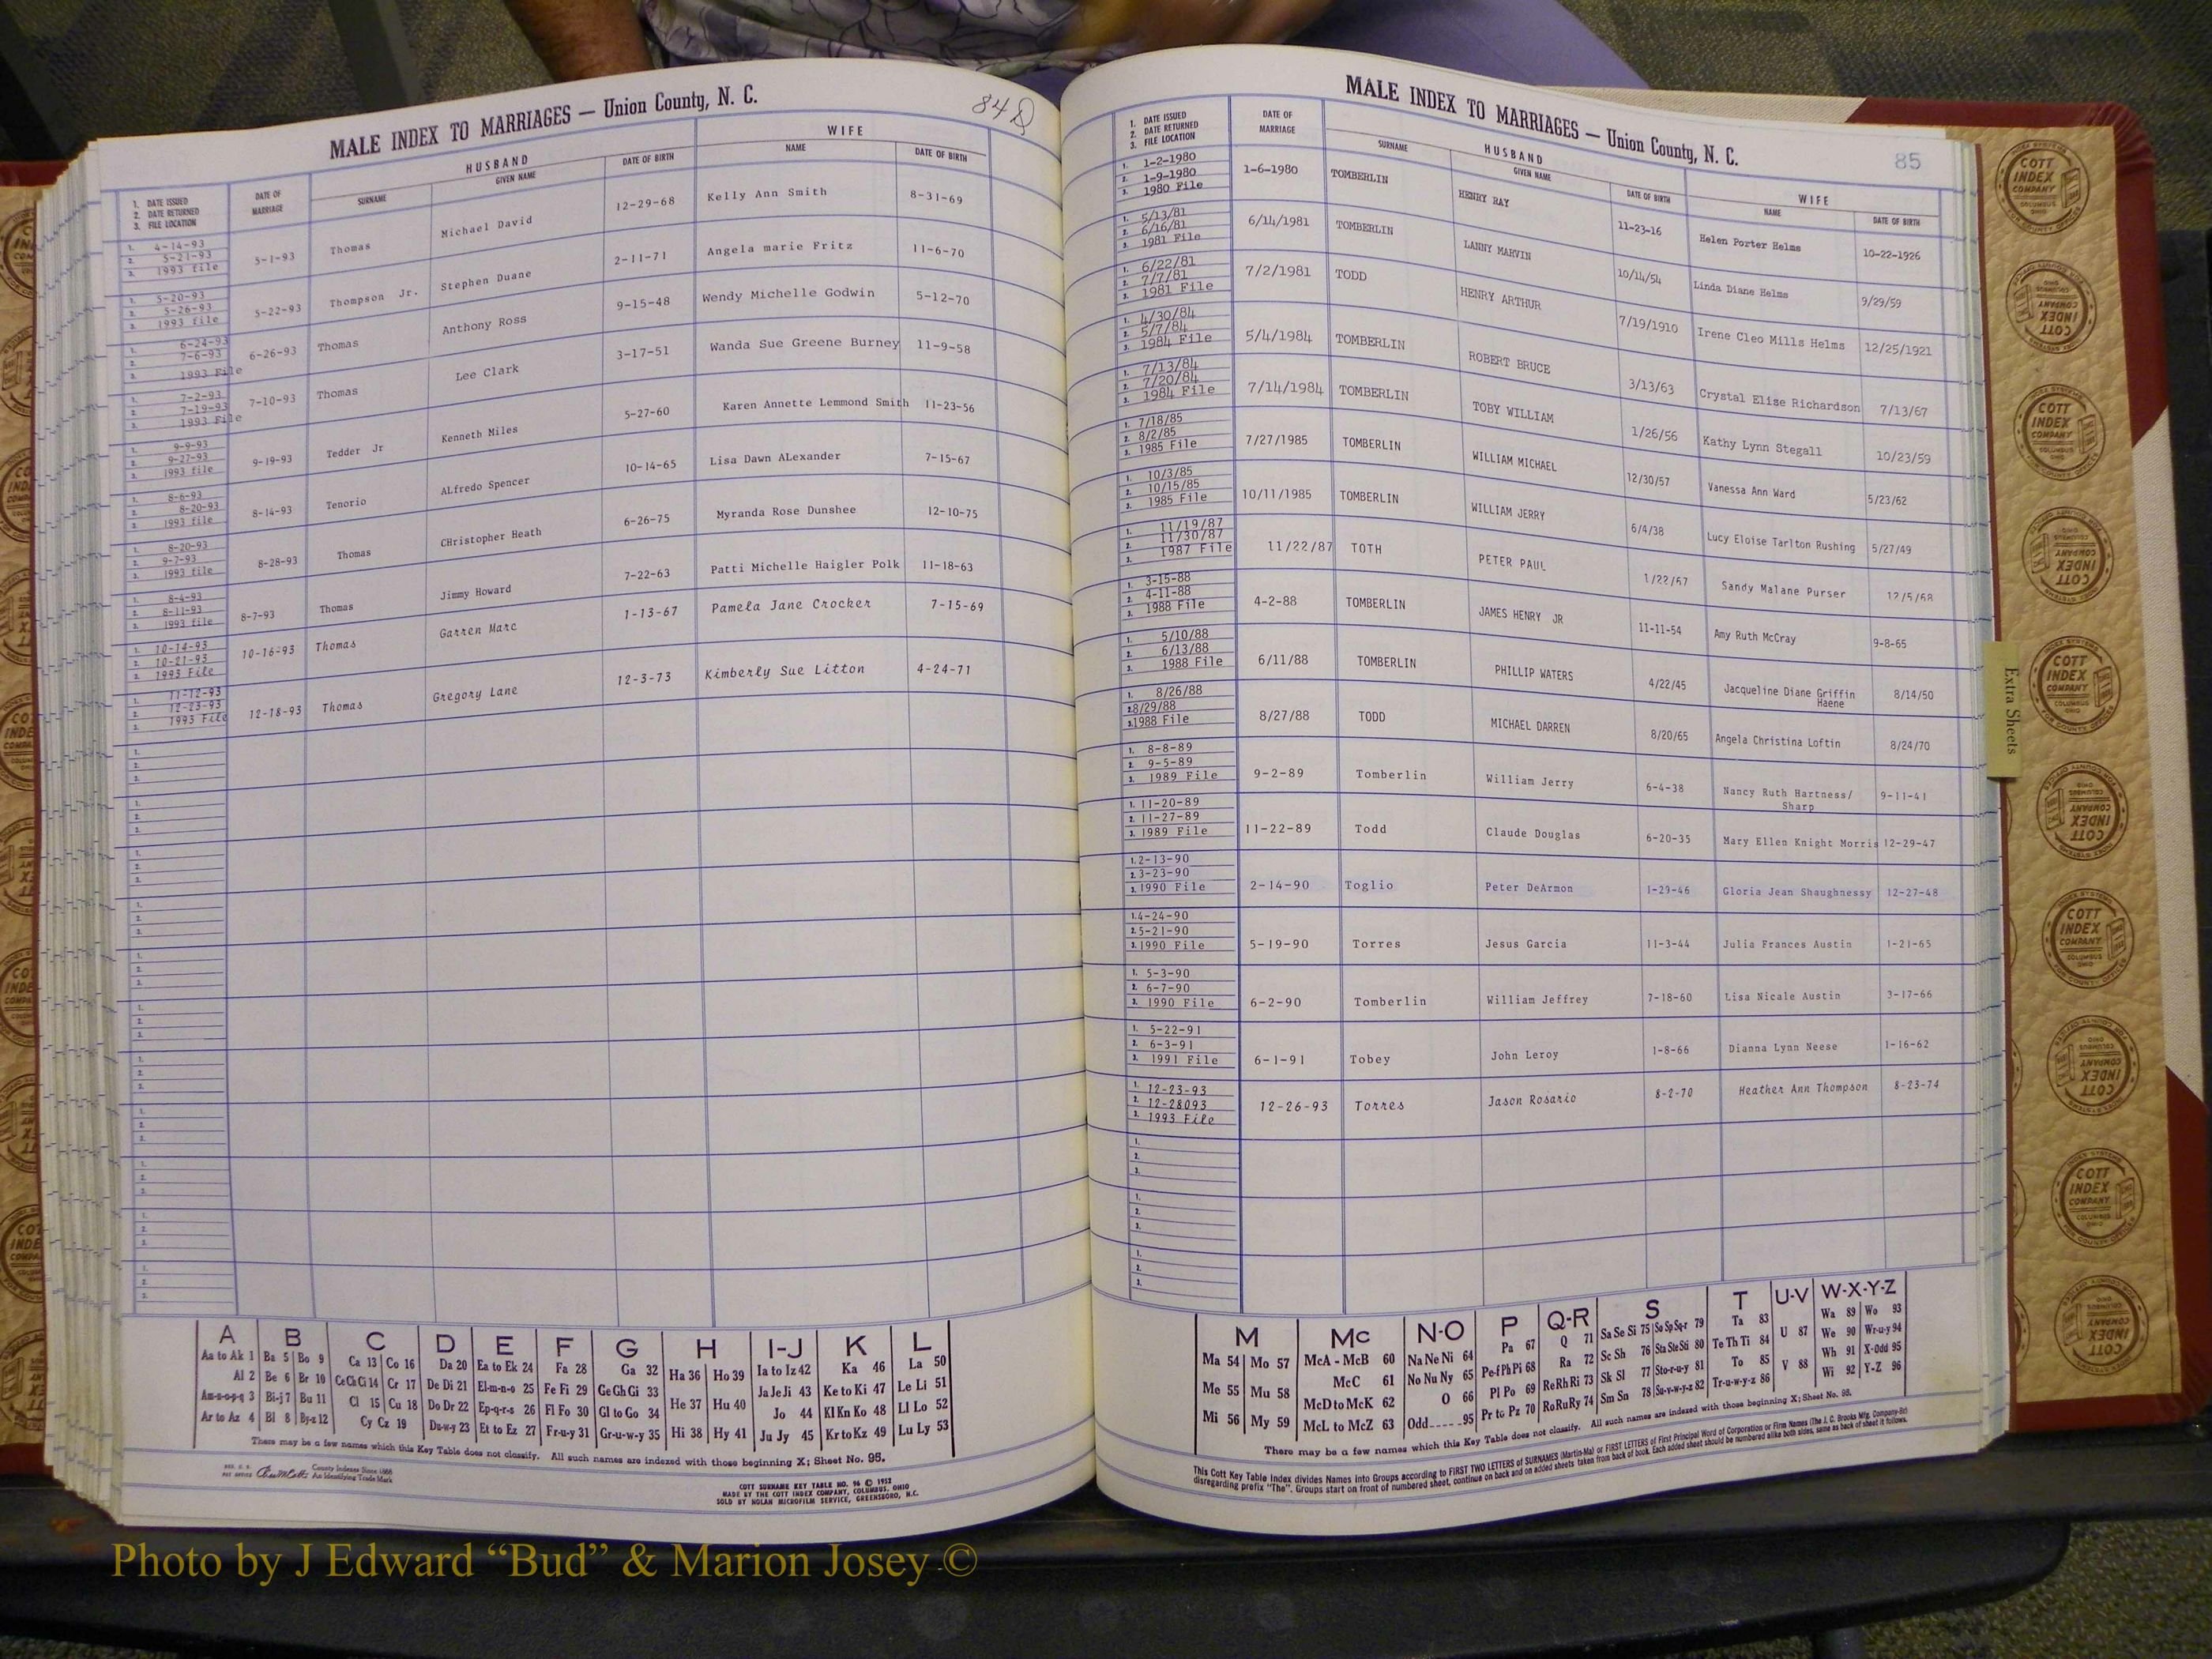 MALE INDEX TO MARRIAGES — Union County, N. C.
84
1. DATE ISSUED
2. DATE RETURNED
3. FILE LOCATION
DATE OF MARRIAGE
HUSBAND
SURNAME
GIVEN NAME
DATE OF BIRTH
WIFE
NAME
DATE OF BIRTH
1. 4-14-93
2. 5-21-93
3. 1993 file
5-1-93 Thomas Michael David 12-29-68 Kelly Ann Smith 8-31-69
1. 5-20-93
2. 5-26-93
3. 1993 file
5-22-93 Thompson Jr. Stephen Duane 2-11-71 Angela marie Fritz 11-6-70
1. 6-24-93
2. 7-6-93
3. 1993 File
6-26-93 Thomas Anthony Ross 9-15-48 Wendy Michelle Godwin 5-12-70
1. 7-2-93
2. 7-19-93
3. 1993 File
7-10-93 Thomas Lee Clark 3-17-51 Wanda Sue Greene Burney 11-9-58
1. 9-9-93
2. 9-27-93
3. 1993 file
9-19-93 Tedder Jr Kenneth Miles 5-27-60 Karen Annette Lemmond Smith 11-23-56
1. 8-6-93
2. 8-20-93
3. 1993 file
8-14-93 Tenorio ALfredo Spencer 10-14-65 Lisa Dawn ALexander 7-15-67
1. 8-20-93
2. 9-7-93
3. 1993 file
8-28-93 Thomas CHristopher Heath 6-26-75 Myranda Rose Dunshee 12-10-75
1. 8-4-93
2. 8-11-93
3. 1993 file
8-7-93 Thomas Jimmy Howard 7-22-63 Patti Michelle Haigler Polk 11-18-63
1. 10-14-93
2. 10-21-93
3. 1993 File
10-16-93 Thomas Garren Marc 1-13-67 Pamela Jane Crocker 7-15-69
1. 11-12-93
2. 12-23-93
3. 1993 File
12-18-93 Thomas Gregory Lane 12-3-73 Kimberly Sue Litton 4-24-71
A B C D E F G H I-J K L
Aa to Ak 1 Ba 5 Bo 9 Ca 13 Co 16 Da 20 Ea to Ek 24 Fa 28 Ga 32 Ha 36 Ho 39 Ia to Iz 42 Ka 46 La 50
Al 2 Be 6 Br 10 Ce Ch Ci 14 Cr 17 De Di 21 El-m-n-o 25 Fe Fi 29 Ge Gh Gi 33 He 37 Hu 40 Ja Je Ji 43 Ke to Ki 47 Le Li 51
Am-n-o-p-q 3 Bi-j 7 Bu 11 Cl 15 Cu 18 Do Dr 22 Ep-q-r-s 26 Fl Fo 30 Gl to Go 34 Jo 44 Kl Kn Ko 48 Ll Lo 52
Ar to Az 4 Bl 8 By-z 12 Cy Cz 19 Du-w-y 23 Et to Ez 27 Fr-u-y 31 Gr-u-w-y 35 Hi 38 Hy 41 Ju Jy 45 Kr to Kz 49 Lu Ly 53
There may be a few names which this Key Table does not classify. All such names are indexed with those beginning X; Sheet No. 95.
County Indexes Since 1888
An Identifying Trade Mark
COTT SURNAME KEY TABLE NO. 96 © 1952
MADE BY THE COTT INDEX COMPANY, COLUMBUS, OHIO
SOLD BY NOLAN MICROFILM SERVICE, GREENSBORO, N.C.
MALE INDEX TO MARRIAGES — Union County, N. C.
85
1. DATE ISSUED
2. DATE RETURNED
3. FILE LOCATION
DATE OF MARRIAGE
HUSBAND
SURNAME
GIVEN NAME
DATE OF BIRTH
WIFE
NAME
DATE OF BIRTH
1. 1-2-1980
2. 1-9-1980
3. 1980 File
1-6-1980 TOMBERLIN HENRY RAY 11-23-16 Helen Porter Helms 10-22-1926
1. 5/13/81
2. 6/16/81
3. 1981 File
6/14/1981 TOMBERLIN LANNY MARVIN 10/14/54 Linda Diane Helms 9/29/59
1. 6/22/81
2. 7/7/81
3. 1981 File
7/2/1981 TODD HENRY ARTHUR 7/19/1910 Irene Cleo Mills Helms 12/25/1921
1. 4/30/84
2. 5/7/84
3. 1984 File
5/4/1984 TOMBERLIN ROBERT BRUCE 3/13/63 Crystal Elise Richardson 7/13/67
1. 7/13/84
2. 7/20/84
3. 1984 File
7/14/1984 TOMBERLIN TOBY WILLIAM 1/26/56 Kathy Lynn Stegall 10/23/59
1. 7/18/85
2. 8/2/85
3. 1985 File
7/27/1985 TOMBERLIN WILLIAM MICHAEL 12/30/57 Vanessa Ann Ward 5/23/62
1. 10/3/85
2. 10/15/85
3. 1985 File
10/11/1985 TOMBERLIN WILLIAM JERRY 6/4/38 Lucy Eloise Tarlton Rushing 5/27/49
1. 11/19/87
2. 11/30/87
3. 1987 File
11/22/87 TOTH PETER PAUL 1/22/67 Sandy Malane Purser 12/5/68
1. 3-15-88
2. 4-11-88
3. 1988 File
4-2-88 TOMBERLIN JAMES HENRY JR 11-11-54 Amy Ruth McCray 9-8-65
1. 5/10/88
2. 6/13/88
3. 1988 File
6/11/88 TOMBERLIN PHILLIP WATERS 4/22/45 Jacqueline Diane Griffin Haene 8/14/50
1. 8/26/88
2. 8/29/88
3. 1988 File
8/27/88 TODD MICHAEL DARREN 8/20/65 Angela Christina Loftin 8/24/70
1. 8-8-89
2. 9-5-89
3. 1989 File
9-2-89 Tomberlin William Jerry 6-4-38 Nancy Ruth Hartness/ Sharp 9-11-41
1. 11-20-89
2. 11-27-89
3. 1989 File
11-22-89 Todd Claude Douglas 6-20-35 Mary Ellen Knight Morris 12-29-47
1. 2-13-90
2. 3-23-90
3. 1990 File
2-14-90 Toglio Peter DeArmon 1-29-46 Gloria Jean Shaughnessy 12-27-48
1. 4-24-90
2. 5-21-90
3. 1990 File
5-19-90 Torres Jesus Garcia 11-3-44 Julia Frances Austin 1-21-65
1. 5-3-90
2. 6-7-90
3. 1990 File
6-2-90 Tomberlin William Jeffrey 7-18-60 Lisa Nicale Austin 3-17-66
1. 5-22-91
2. 6-3-91
3. 1991 File
6-1-91 Tobey John Leroy 1-8-66 Dianna Lynn Neese 1-16-62
1. 12-23-93
2. 12-28093
3. 1993 File
12-26-93 Torres Jason Rosario 8-2-70 Heather Ann Thompson 8-23-74
M Mc N-O P Q-R S T U-V W-X-Y-Z
Ma 54 Mo 57 McA - McB 60 Na Ne Ni 64 Pa 67 Q 71 Sa Se Si 75 So Sp Sq-r 79 Ta 83 U 87 Wa 89 Wo 93
Me 55 Mu 58 McC 61 No Nu Ny 65 Pe-f Ph Pi 68 Ra 72 Sc Sh 76 Sta Ste Sti 80 Te Th Ti 84 We 90 Wr-u-y 94
McD to McK 62 O 66 Pl Po 69 Re Rh Ri 73 Sk Sl 77 Sto-r-u-y 81 To 85 V 88 Wh 91 X-Odd 95
Mi 56 My 59 McL to McZ 63 Odd-----95 Pr to Pz 70 Ro Ru Ry 74 Sm Sn 78 Su-v-w-y-z 82 Tr-u-w-y-z 86 Wi 92 Y-Z 96
There may be a few names which this Key Table does not classify. All such names are indexed with those beginning X; Sheet No. 95.
This Cott Key Table Index divides Names into Groups according to FIRST TWO LETTERS of SURNAMES (Martin-Ma) or FIRST LETTERS of First Principal Word of Corporation or Firm Names (The J. C. Brooks Mfg. Company-Br)
disregarding prefix "The". Groups start on front of numbered sheet, continue on back and on added sheets taken from back of book. Each added sheet should be numbered alike both sides, same as back of sheet it follows.
Extra Sheets
COTT INDEX COMPANY COLUMBUS OHIO
INDEX SYSTEMS FOR COUNTY OFFICES
Photo by J Edward “Bud” & Marion Josey ©